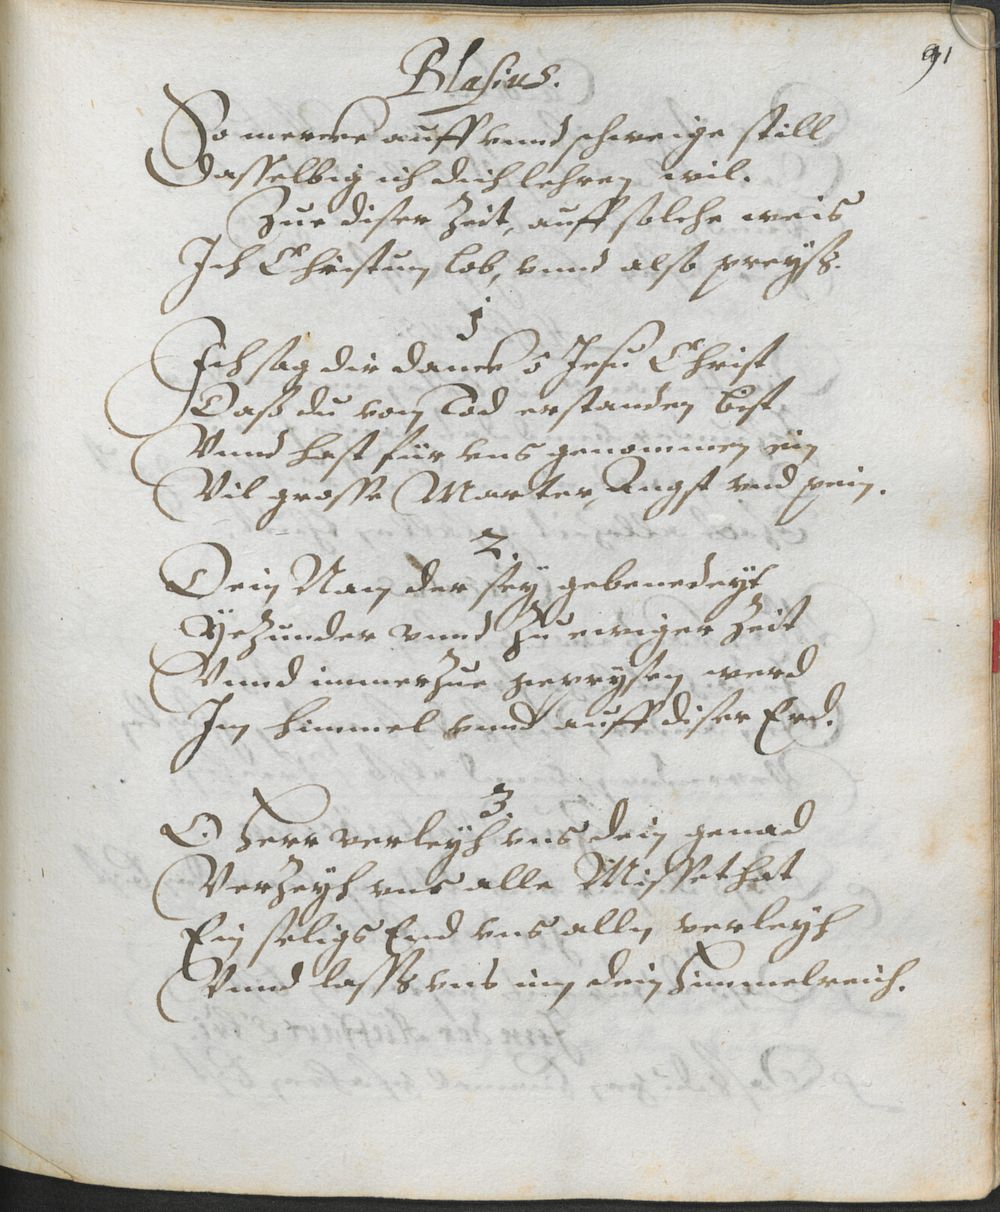 91
Blasius.
So merckhe auff vnnd schweige still
Dasselbig ich dich lehren wil.
Zue diser Zeit, auff solche weis
Ich Christum lob, vnnd also preyß.
1
Ich sag dir danck ô Jesu Christ
Daß du vom Tod erstanden bist
Vnnd hast für vns genommen ein
Vil grosse Marter, Angst vnd pein.
2.
Dein Nam der sey gebenedeyt
Yetzunder vnnd zu ewiger Zeit
Vnnd immerzue geprysen werd
Im himmel vnnd auff diser Erd.
3.
O Herr verleyh vns dein genad
Verzeyh vns alle Missethat
Ein seligs End vns alln verleyh
Vnnd lasß vns inn dein Himmelreich.